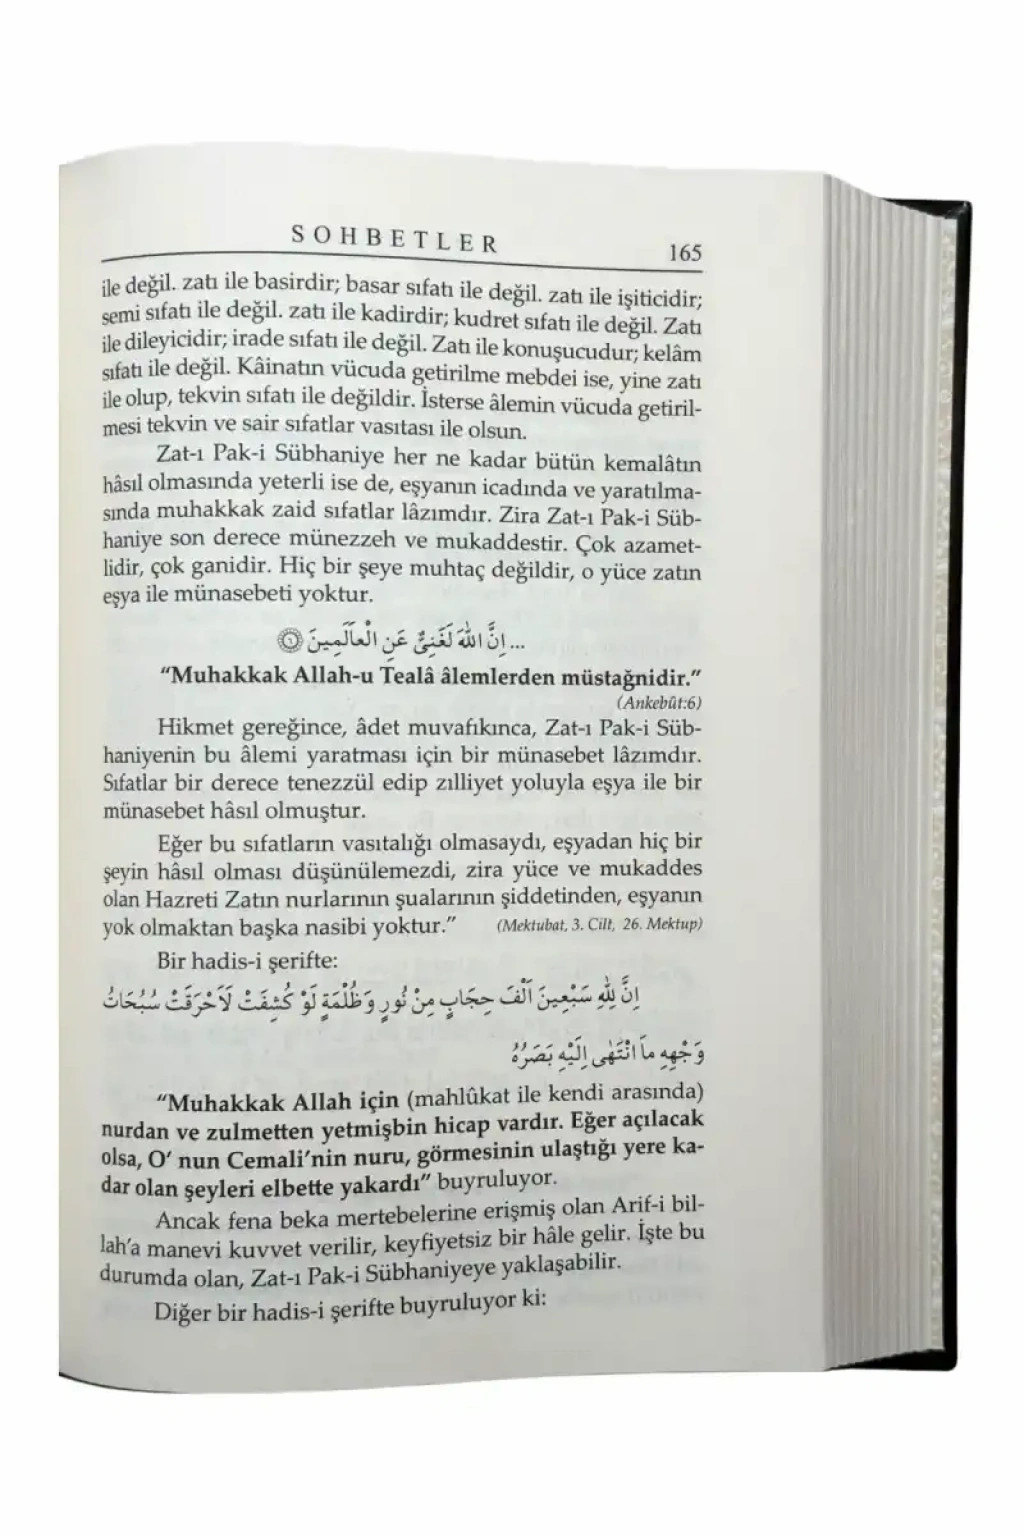 SOHBETLER
165
ile değil. zatı ile basirdir; basar sıfatı ile değil. zatı ile işiticidir;
semi sıfatı ile değil. zatı ile kadirdir; kudret sıfatı ile değil. Zatı
ile dileyicidir; irade sıfatı ile değil. Zatı ile konuşucudur; kelâm
sıfatı ile değil. Kâinatın vücuda getirilme mebdei ise, yine zatı
ile olup, tekvin sıfatı ile değildir. İsterse âlemin vücuda getiril-
mesi tekvin ve sair sıfatlar vasıtası ile olsun.
Zat-ı Pak-i Sübhaniye her ne kadar bütün kemalâtın
hâsıl olmasında yeterli ise de, eşyanın icadında ve yaratılma-
sında muhakkak zaid sıfatlar lâzımdır. Zira Zat-ı Pak-i Süb-
haniye son derece münezzeh ve mukaddestir. Çok azamet-
lidir, çok ganidir. Hiç bir şeye muhtaç değildir, o yüce zatın
eşya ile münasebeti yoktur.
... اِنَّ اللّٰهَ لَغَنِيٌّ عَنِ الْعَالَمِينَ ﴿٦﴾
“Muhakkak Allah-u Tealâ âlemlerden müstağnidir.”
(Ankebût:6)
Hikmet gereğince, âdet muvafıkınca, Zat-ı Pak-i Süb-
haniyenin bu âlemi yaratması için bir münasebet lâzımdır.
Sıfatlar bir derece tenezzül edip zılliyet yoluyla eşya ile bir
münasebet hâsıl olmuştur.
Eğer bu sıfatların vasıtalığı olmasaydı, eşyadan hiç bir
şeyin hâsıl olması düşünülemezdi, zira yüce ve mukaddes
olan Hazreti Zatın nurlarının şualarının şiddetinden, eşyanın
yok olmaktan başka nasibi yoktur.” (Mektubat, 3. Cilt, 26. Mektup)
Bir hadis-i şerifte:
اِنَّ لِلّٰهِ سَبْعِينَ اَلْفَ حِجَابٍ مِنْ نُورٍ وَظُلْمَةٍ لَوْ كُشِفَتْ لَاَحْرَقَتْ سُبُحَاتُ
وَجْهِهِ مَا انْتَهٰى اِلَيْهِ بَصَرُهُ
“Muhakkak Allah için (mahlûkat ile kendi arasında)
nurdan ve zulmetten yetmişbin hicap vardır. Eğer açılacak
olsa, O' nun Cemali'nin nuru, görmesinin ulaştığı yere ka-
dar olan şeyleri elbette yakardı” buyruluyor.
Ancak fena beka mertebelerine erişmiş olan Arif-i bil-
lah'a manevi kuvvet verilir, keyfiyetsiz bir hâle gelir. İşte bu
durumda olan, Zat-ı Pak-i Sübhaniyeye yaklaşabilir.
Diğer bir hadis-i şerifte buyruluyor ki: